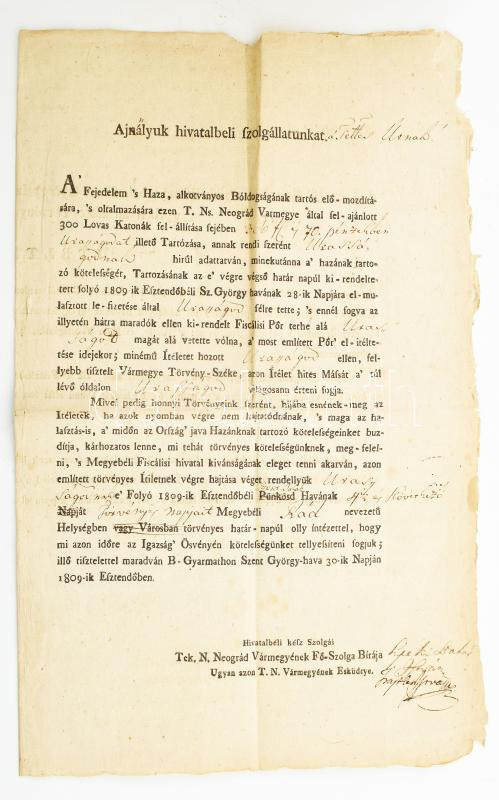 Ajnályuk hivatalbeli szolgállatunkat a Tettes Úrnak
A' Fejedelem 's Haza, alkotványos Bóldogságának tartós elő-mozdítá-
sára, 's oltalmazására ezen T. Ns. Neográd Varmegye 'által fel-ajánlott
300 Lovas Katonák fel-állítása fejében 70. pénzekben
Uraságodat illető Tartozása, annak rendi szerént Urassá-
godnak hirül adattatván, minekutánna a' hazának tarto-
zó kötelességét, Tartozásának az e' végre végső határ napúl ki-rendelte-
tett folyó 1809-ik Esztendőbéli Sz. György havának 28-ik Napjára el-mu-
lasztott le-fizetése által Uraságod félre tette; 's ennél fogva az
illyetén hátra maradók ellen ki-rendelt Fiscálisi Pőr terhe alá Uras-
ságod magát alá vetette vólna, a' most említett Pőr' el-itélte-
tése idejekor; minémű Ítéletet hozott Uraságod ellen, fel-
lyebb tisztelt Vármegye Törvény-Széke, azon Itélet hites Mását a' túl
lévő óldalon Uraságod világosann érteni fogja.
Mivel pedig honnyi Törvényeink szerént, hijába esnének-meg az
Itéletek, ha azok nyomban végre nem hajtatódnának, 's maga az ha-
lasztás-is, a' midőn az Ország' java Hazánknak tartozó kötelességeinket buz-
dítja, kárhozatos lenne, mi tehát törvényes kötelességünknek, meg-felel-
ni, 's Megyebéli Fiscálisi hivatal kivánságának eleget tenni akarván, azon
említett törvényes Itiletnek végre hajtása véget rendellyük Urasy
Ságodnak e' Folyó 1809-ik Esztendőbéli Pünkösd Havának 4ik és következő
Napját Törvényes napjait Megyebéli Kád nevezetű
Helységben vagy Városban törvényes határ-napúl olly intézettel, hogy
mi azon időre az Igazság' Ösvényén kötelességünket tellyesíteni fogjuk;
illő tisztelettel maradván B-Gyarmathon Szent György-hava 30-ik Napján
1809-ik Esztendőben.
Hivatalbéli kész Szolgái
Tek. N. Neográd Vármegyének Fő-Szolga Birája
Ugyan azon T. N. Vármegyének Esküdtye.